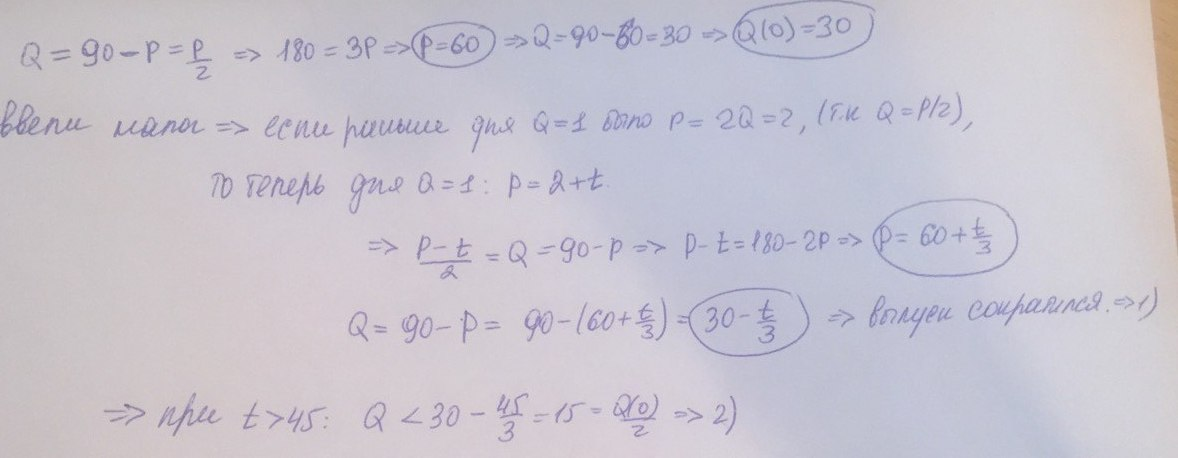 Q = 90 - P = P/2 => 180 = 3P => P=60 => Q = 90 - 60 = 30 => Q(0) = 30
ввели налог => если раньше для Q=1 было P = 2Q = 2, (т.к Q = P/2),
то теперь для Q=1: P = 2+t.
=> (P-t)/2 = Q = 90-P => P-t = 180-2P => P = 60 + t/3
Q = 90 - P = 90 - (60 + t/3) = 30 - t/3 => выпуск сократился. => 1)
=> при t > 45: Q < 30 - 45/3 = 15 = Q(0)/2 => 2)